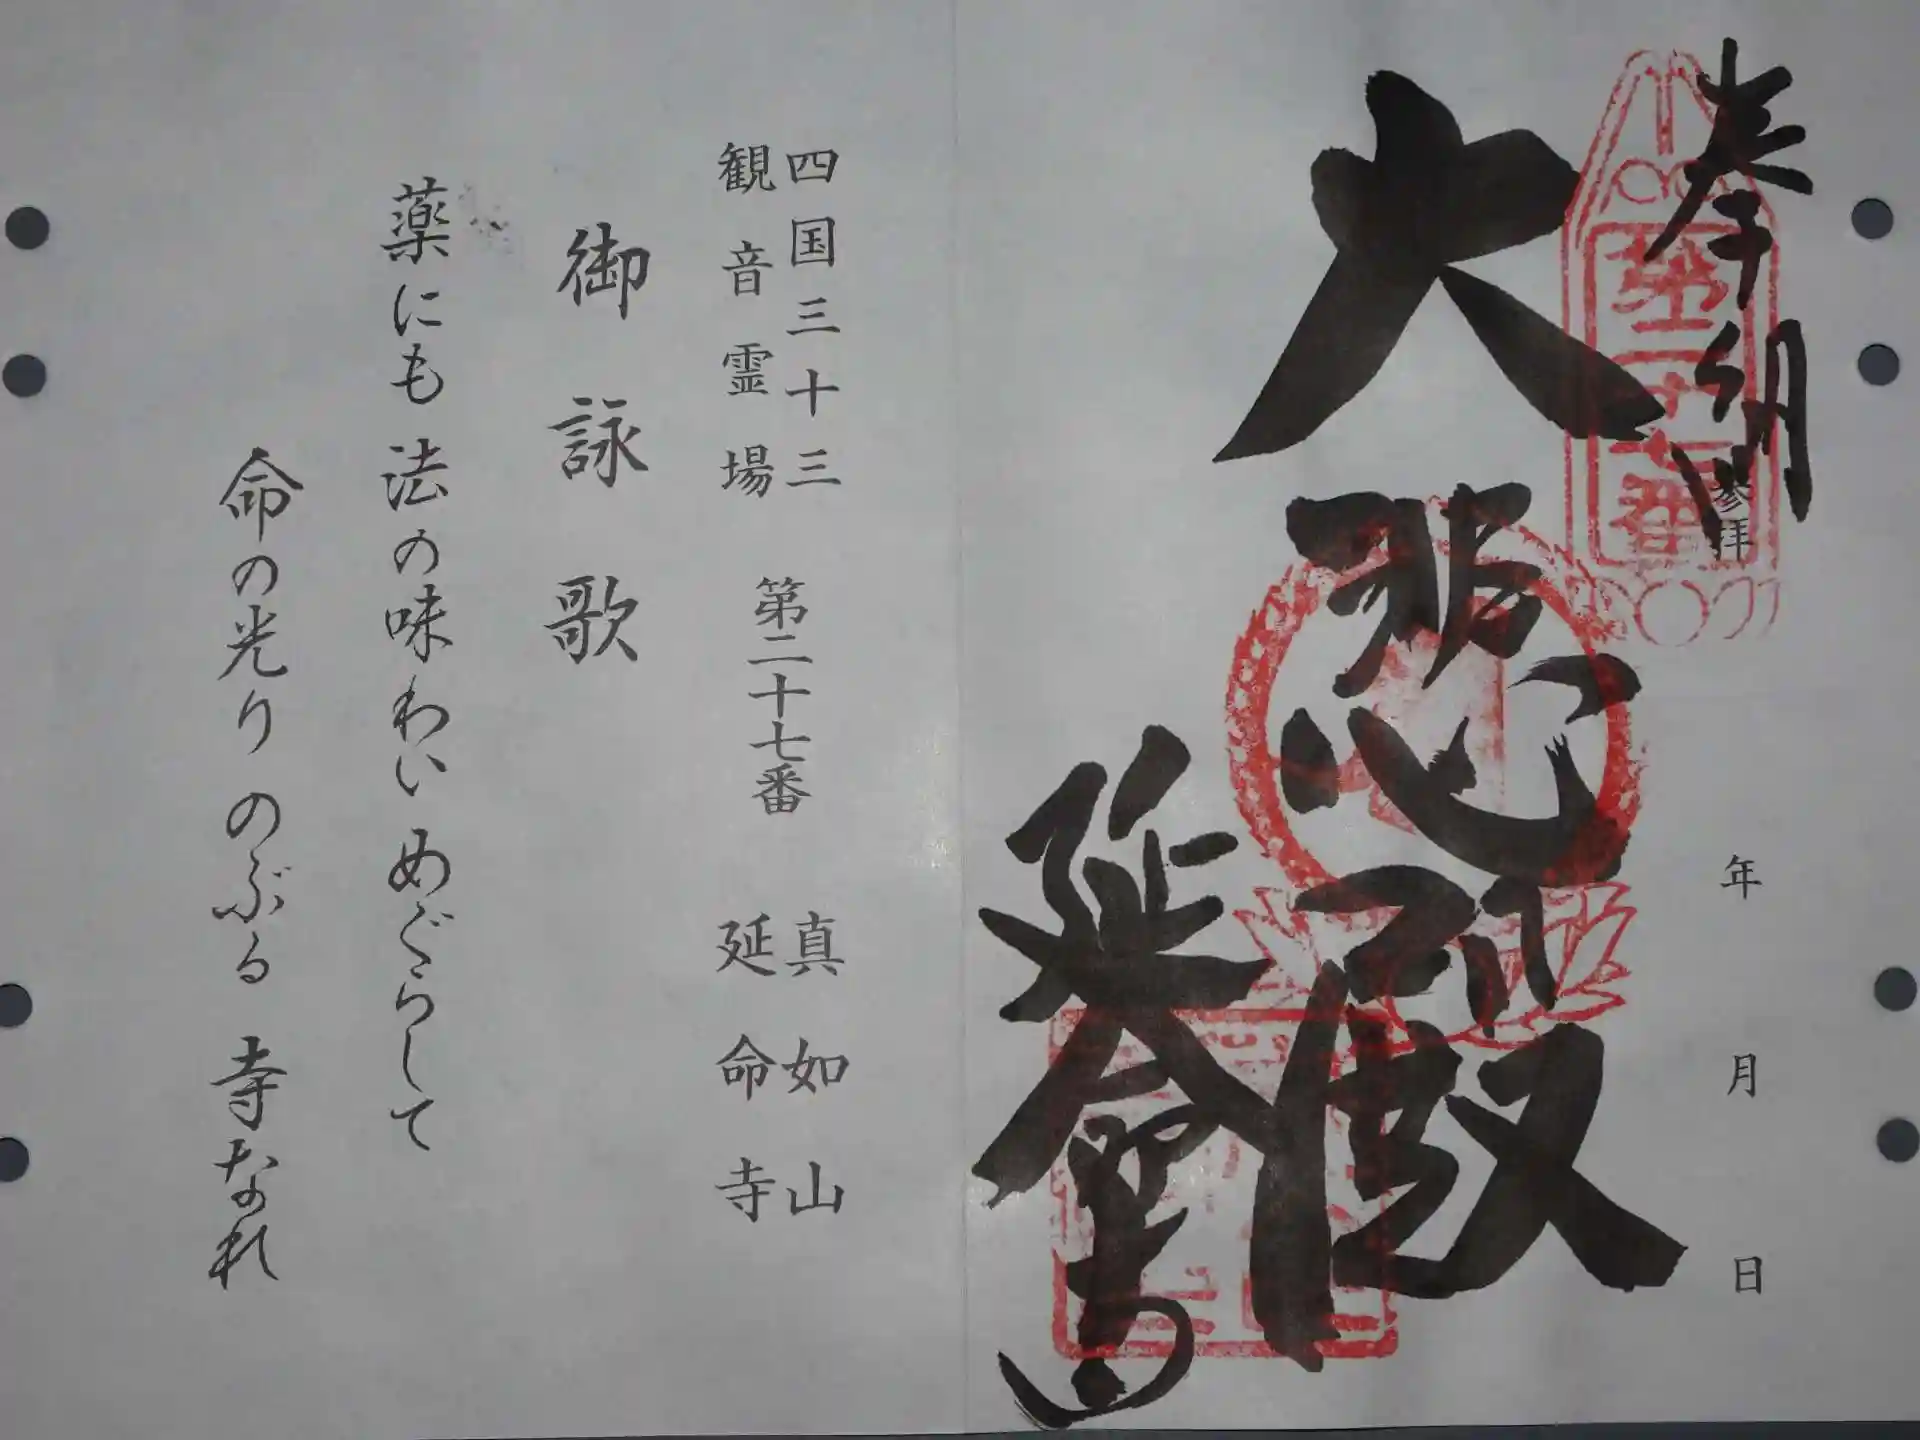 奉納
参拝
年 月 日
大悲殿
延命寺
第二十七番
四国三十三
観音霊場
第二十七番
真如山
延命寺
御詠歌
薬にも 法の味わい めぐらして
命の光り のぶる 寺なれ